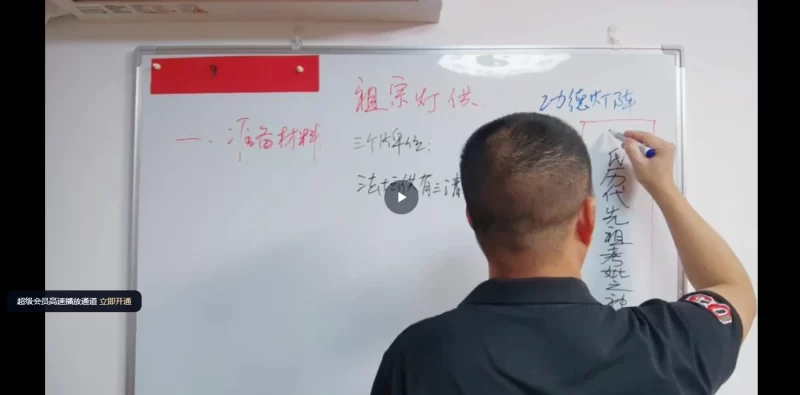 祖宗灯供
功德灯阵
一、准备材料
三个牌位:
法坛供有三清
氏历代先祖考妣之神
超级会员高速播放通道 立即开通